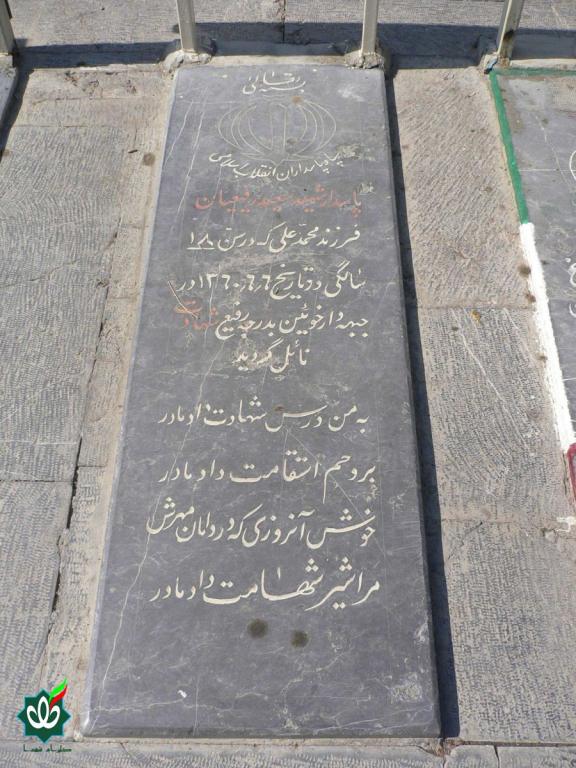 بسمه تعالی
سپاه پاسداران انقلاب اسلامی
پاسدار شهید سعید رفیعیان
فرزند محمدعلی که در سن ۱۸
سالگی در تاریخ ۱۳۶۰٫۶٫۶ در
جبهه دارخوئین بدرجه رفیع شهادت
نائل گردید
به من درس شهادت داد مادر
بروحم استقامت داد مادر
خوش آنروزی که در دامان مهرش
مرا شیر شهامت داد مادر